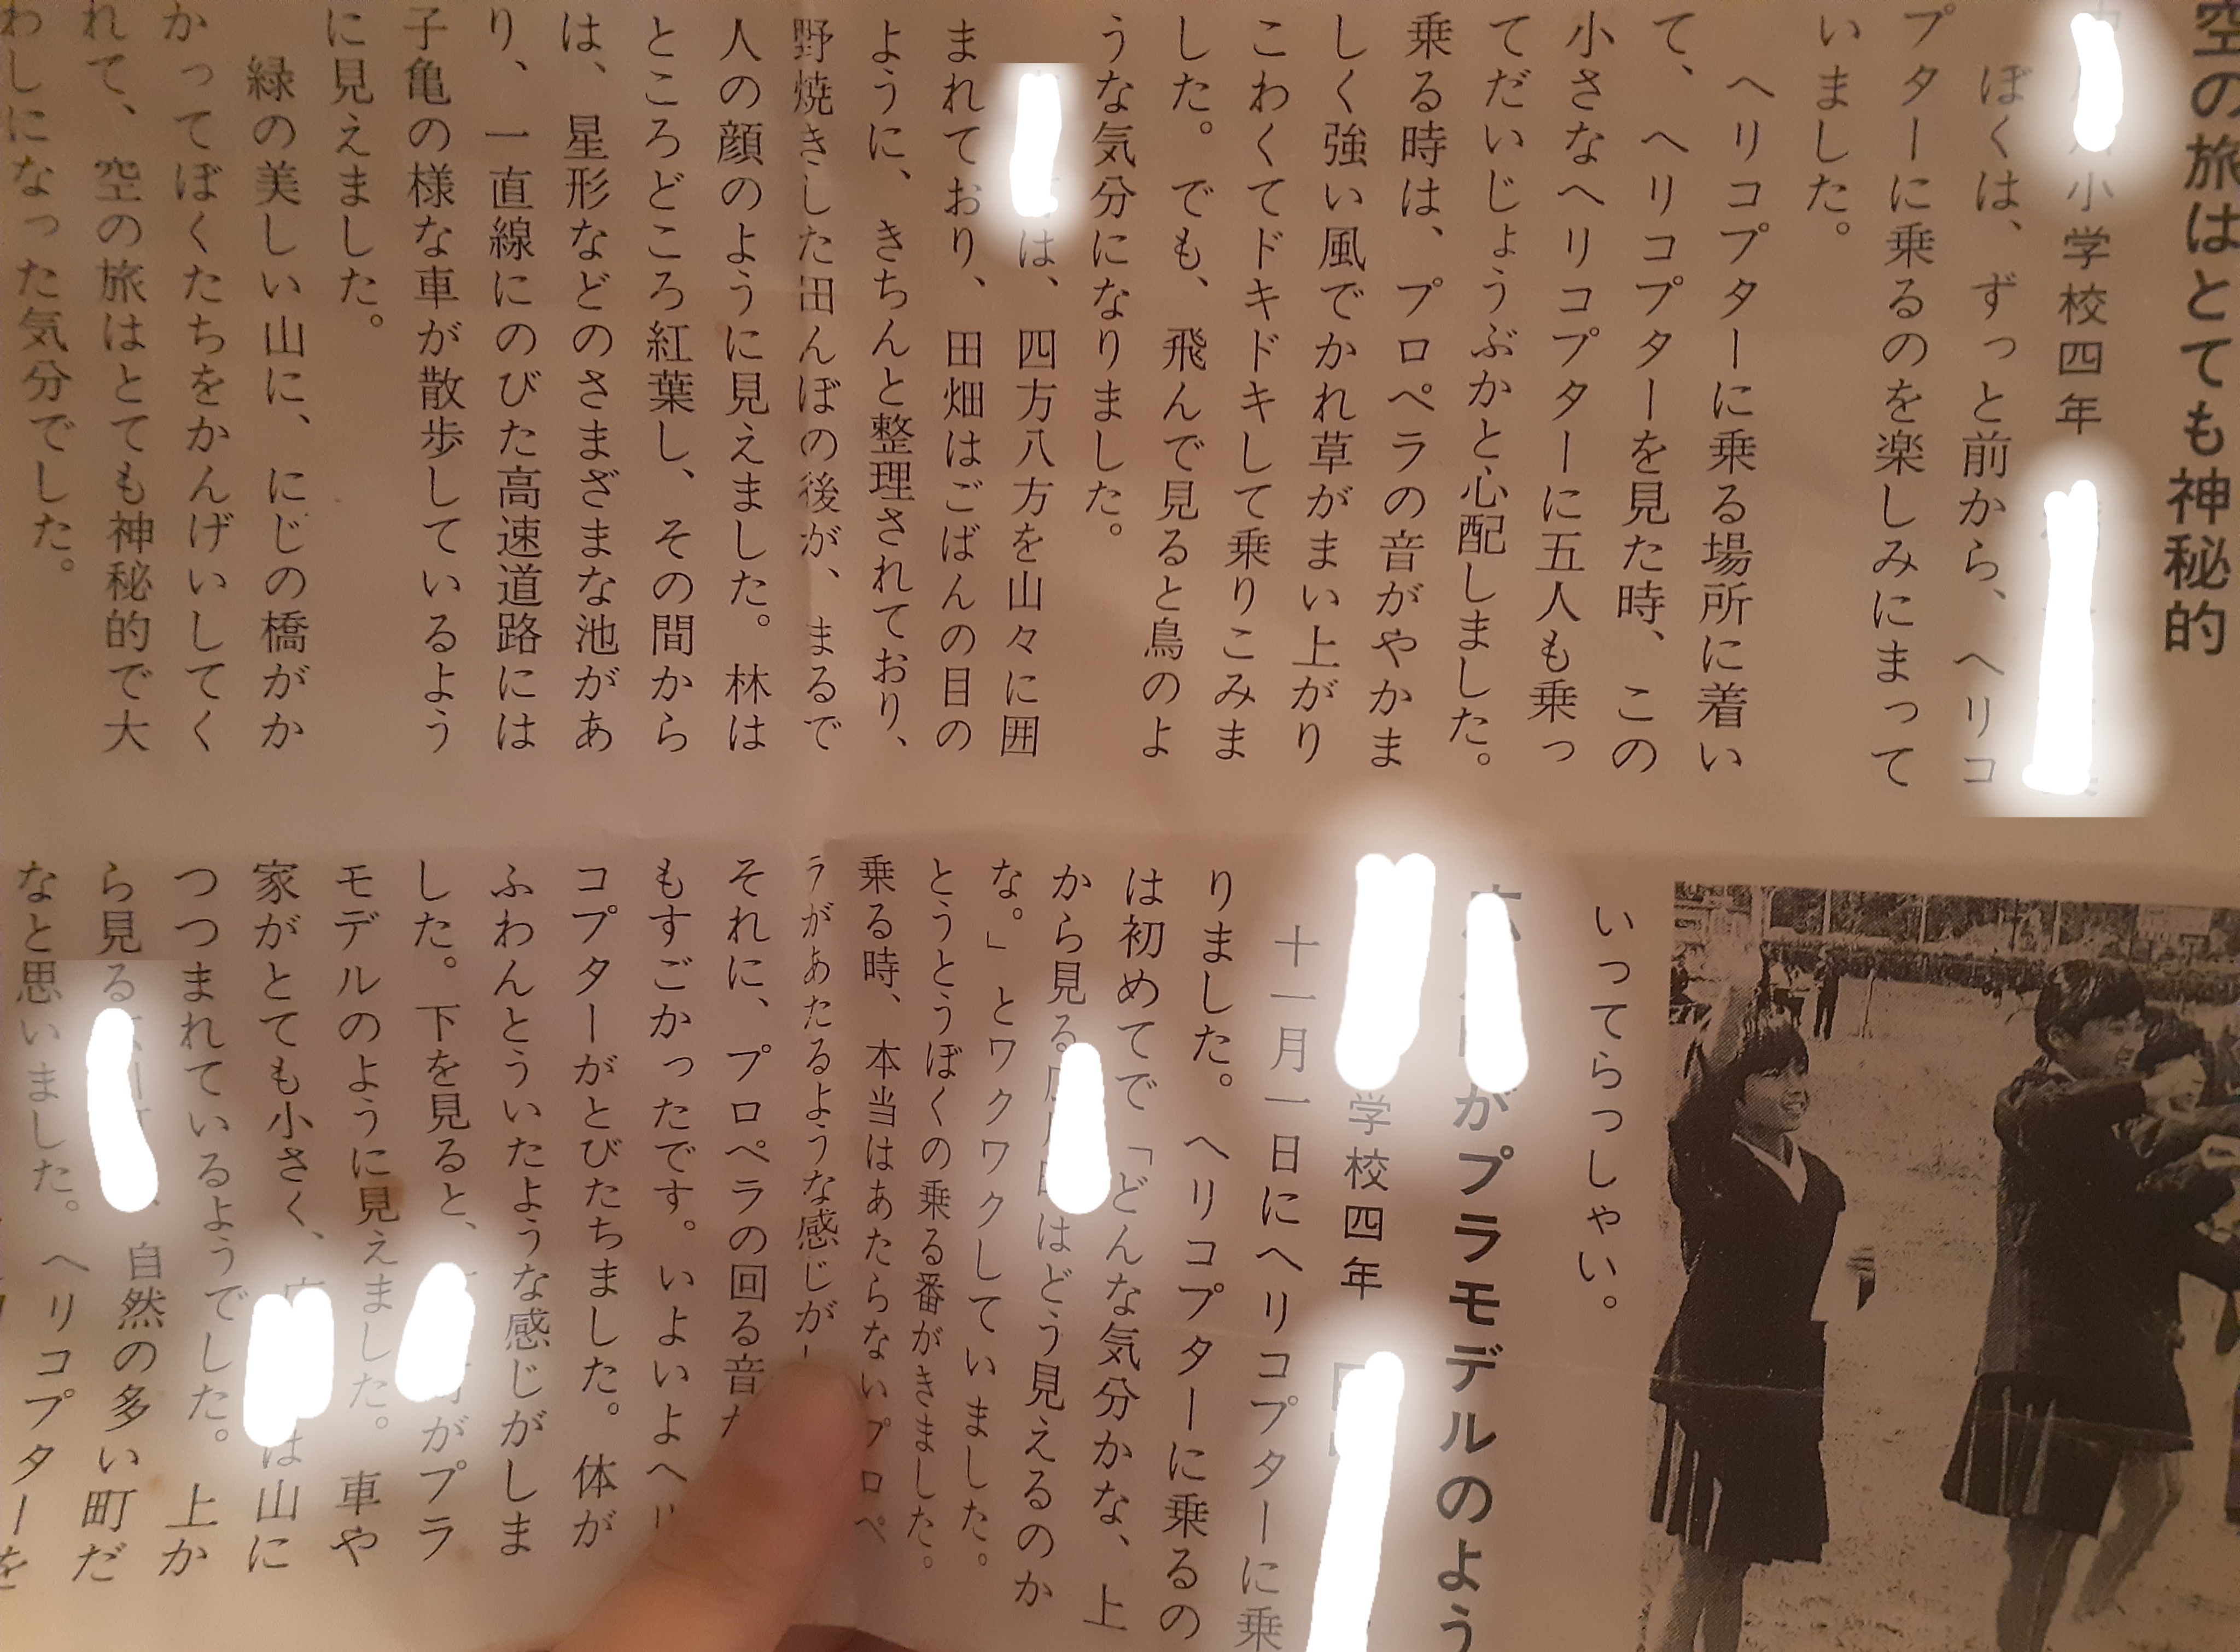 空の旅はとても神秘的
小学校四年
ぼくは、ずっと前から、ヘリコ
プターに乗るのを楽しみにまって
いました。
ヘリコプターに乗る場所に着い
て、ヘリコプターを見た時、この
小さなヘリコプターに五人も乗っ
てだいじょうぶかと心配しました。
乗る時は、プロペラの音がやかま
しく強い風でかれ草がまい上がり
こわくてドキドキして乗りこみま
した。でも、飛んで見ると鳥のよ
うな気分になりました。
は、四方八方を山々に囲
まれており、田畑はごばんの目の
ように、きちんと整理されており、
野焼きした田んぼの後が、まるで
人の顔のように見えました。林は
ところどころ紅葉し、その間から
は、星形などのさまざまな池があ
り、一直線にのびた高速道路には
子亀の様な車が散歩しているよう
に見えました。
緑の美しい山に、にじの橋がか
かってぼくたちをかんげいしてく
れて、空の旅はとても神秘的で大
わしになった気分でした。
いってらっしゃい。
がプラモデルのよう
学校四年
十一月一日にヘリコプターに乗
りました。ヘリコプターに乗るの
は初めてで「どんな気分かな、上
から見る はどう見えるのか
な。」とワクワクしていました。
とうとうぼくの乗る番がきました。
乗る時、本当はあたらないプロペ
ラがあたるような感じが
それに、プロペラの回る音
もすごかったです。いよいよヘリ
コプターがとびたちました。体が
ふわんとういたような感じがしま
した。下を見ると、 がプラ
モデルのように見えました。車や
家がとても小さく、 は山に
つつまれているようでした。上か
ら見る 、自然の多い町だ
なと思いました。ヘリコプターを